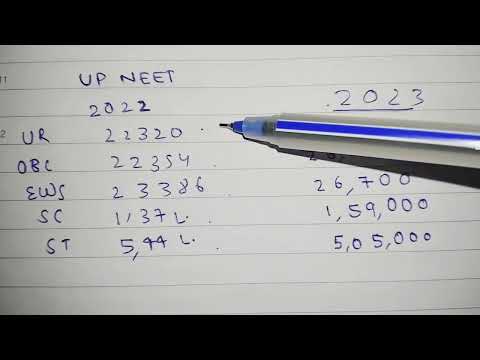 UP NEET
2022 2023
UR 22320
OBC 22354
EWS 23386 26,700
SC 1,37 L. 1,59,000
ST 5,44 L. 5,05,000